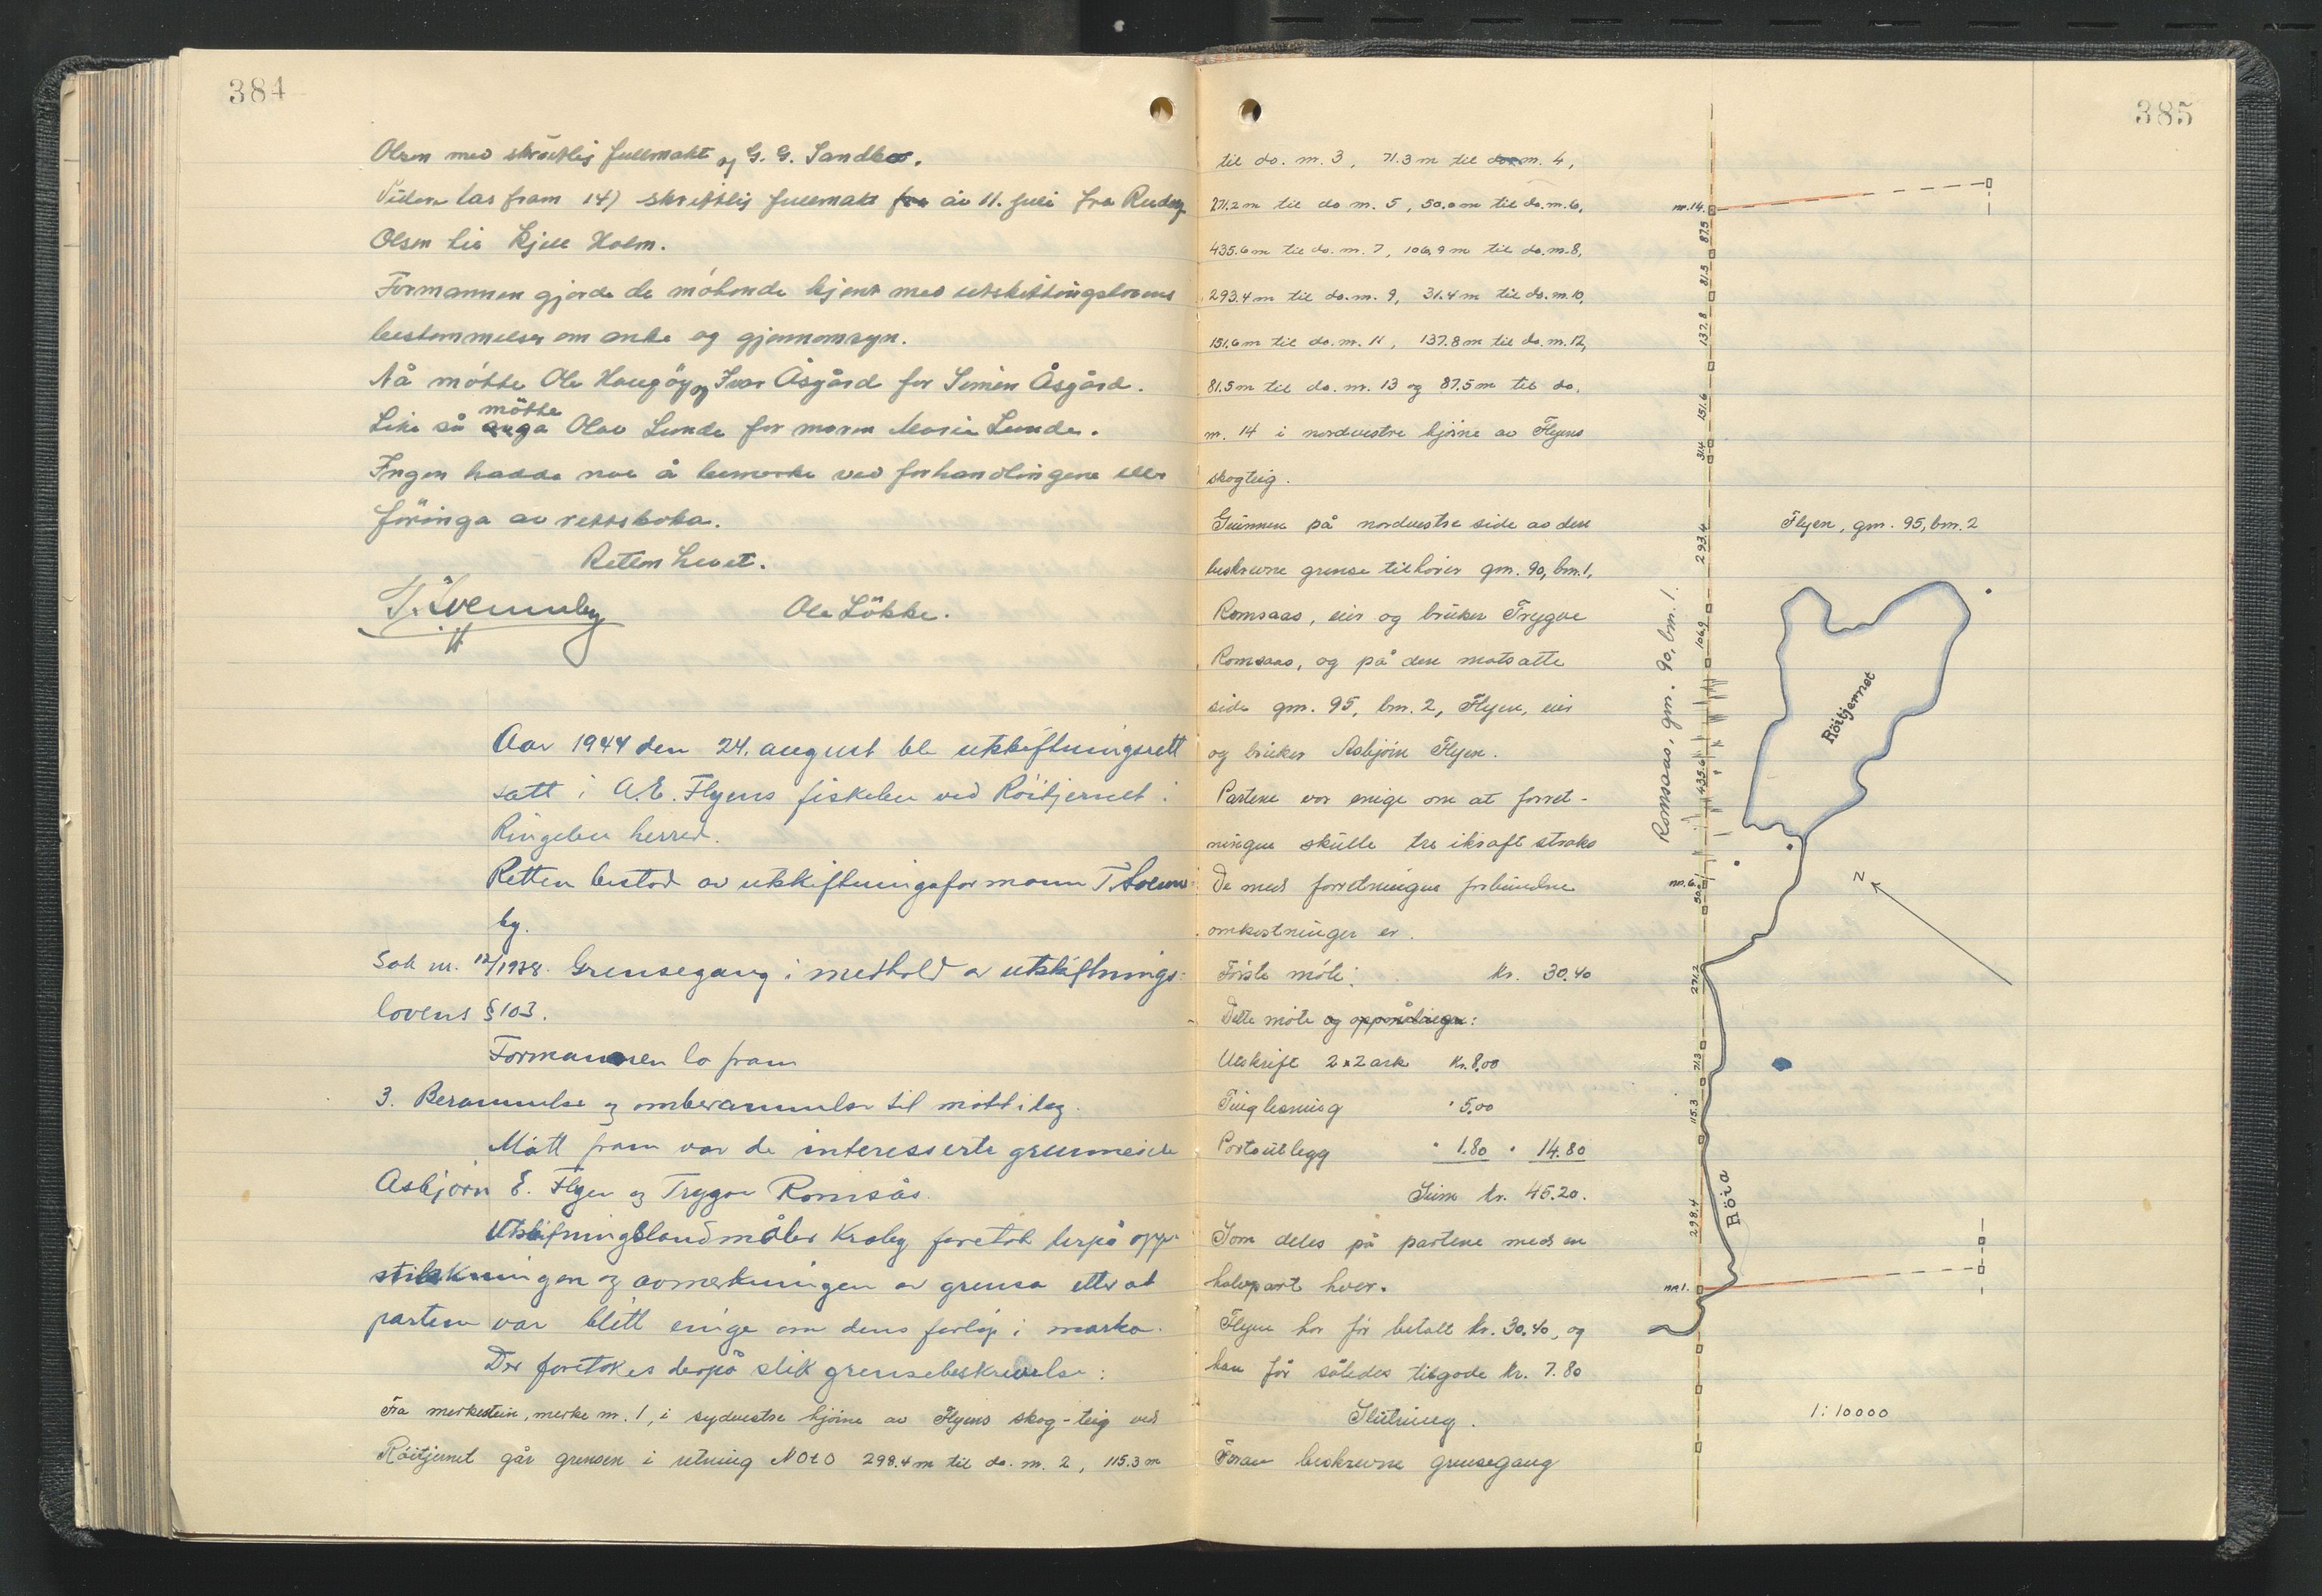 384
Olsen med skriftlig fullmakt og G. G. Sandbo.
Videre las fram 14) skriftlig fullmakt fra av 11. juli fra Rudolf
Olsen til Kjell Holm.
Formannen gjorde de møtende kjent med utskiftingslovens
bestemmelser om anke og gjennomsyn.
Nå møtte Ole Haugøy og Ivar Åsgård for Simen Åsgård.
møtte
Like så Olav Lunde for moren Marie Lunde.
Ingen hadde noe å bemerke ved forhandlingene eller
føringa av rettsboka.
Retten hevet.
T. Svennby Ola Løkke.
Aar 1944 den 24. august ble utskiftningsrett
satt i A. E. Flyens fiskebu ved Röitjernet i
Ringebu herred.
Retten bestod av utskiftningsformann T. Svenn-
by.
Sak nr. 12/1938. Grensegang i medhold av utskiftnings-
lovens § 103.
Formannen la fram
3. Berammelse og omberammelse til møtt idag.
Møtt fram var de interesserte grunneiere
Asbjørn E. Flyen og Trygve Romsås.
Utskiftningslandmåler Kraby foretok derpå opp-
stikkningen og avmerkningen av grensa etter at
partene var blitt enige om dens forløp i marka.
Der foretokes derpå slik grensebeskrivelse:
Fra merkestein, merke nr. 1, i sydvestre hjørne av Flyens skog-teig ved
Röitjernet går grensen i retning NOtO 298.4 m til do. nr. 2, 115.3 m
385
til do. nr. 3, 71.3 m til do. nr. 4,
271.2 m til do nr. 5, 50.0 m til do. nr. 6,
435.6 m til do. nr. 7, 106.9 m til do. nr. 8,
293.4 m til do. nr. 9, 31.4 m til do. nr. 10,
151.6 m til do. nr. 11, 137.8 m til do. nr. 12,
81.5 m til do. nr. 13 og 87.5 m til do.
nr. 14 i nordvestre hjørne av Flyens
skogteig.
Grunnen på nordvestre side av den
beskrevne grense tilhører gnr. 90, bnr. 1,
Romsaas, eier og bruker Trygve
Romsaas, og på den motsatte
side gnr. 95, bnr. 2, Flyen, eier
og bruker Asbjørn Flyen.
Partene var enige om at forret-
ningen skulle tre ikraft straks
De med forretningen forbundne
omkostninger er.
Første møte: kr. 30.40
Dette møte og oppmålingen:
Utskrift 2 x 2 ark kr. 8,00
Tinglesning " 5,00
Portoutlegg " 1.80 " 14.80
Sum kr. 45.20.
Som deles på partene med en
halvpart hver.
Flyen har før betalt kr. 30.40, og
han får således tilgode kr. 7.80
Slutning.
Foran beskrevne grensegang
nr. 14.
87.5
81.5
137.8
151.6
31.4
293.4
Flyen, gnr. 95, bnr. 2
Romsaas, gnr. 90, bnr. 1.
106.9
Röitjernet
435.6
nr. 6.
50.0
N
271.2
71.3
115.3
Röia
298.4
nr. 1.
1:10000